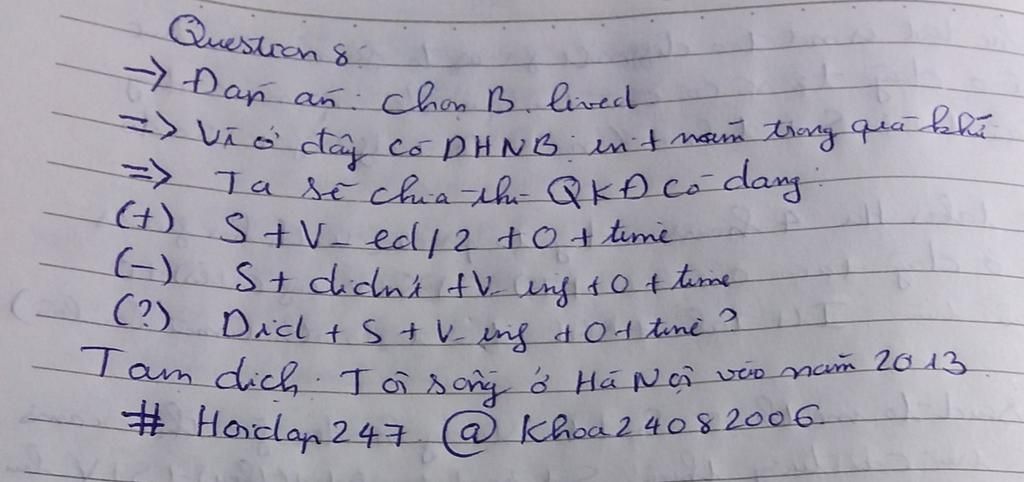 Question 8:
→ Đáp án: Chọn B. lived
=> Vì ở đây có DHNB: in + năm trong quá khứ
=> Ta sẽ chia thì QKĐ có dạng:
(+) S + V_ed/2 + O + time
(-) S + didn't + V_ing + O + time
(?) Did + S + V_ing + O + time?
Tạm dịch: Tôi sống ở Hà Nội vào năm 2013
# Hoidap247 @ Khoa24082006